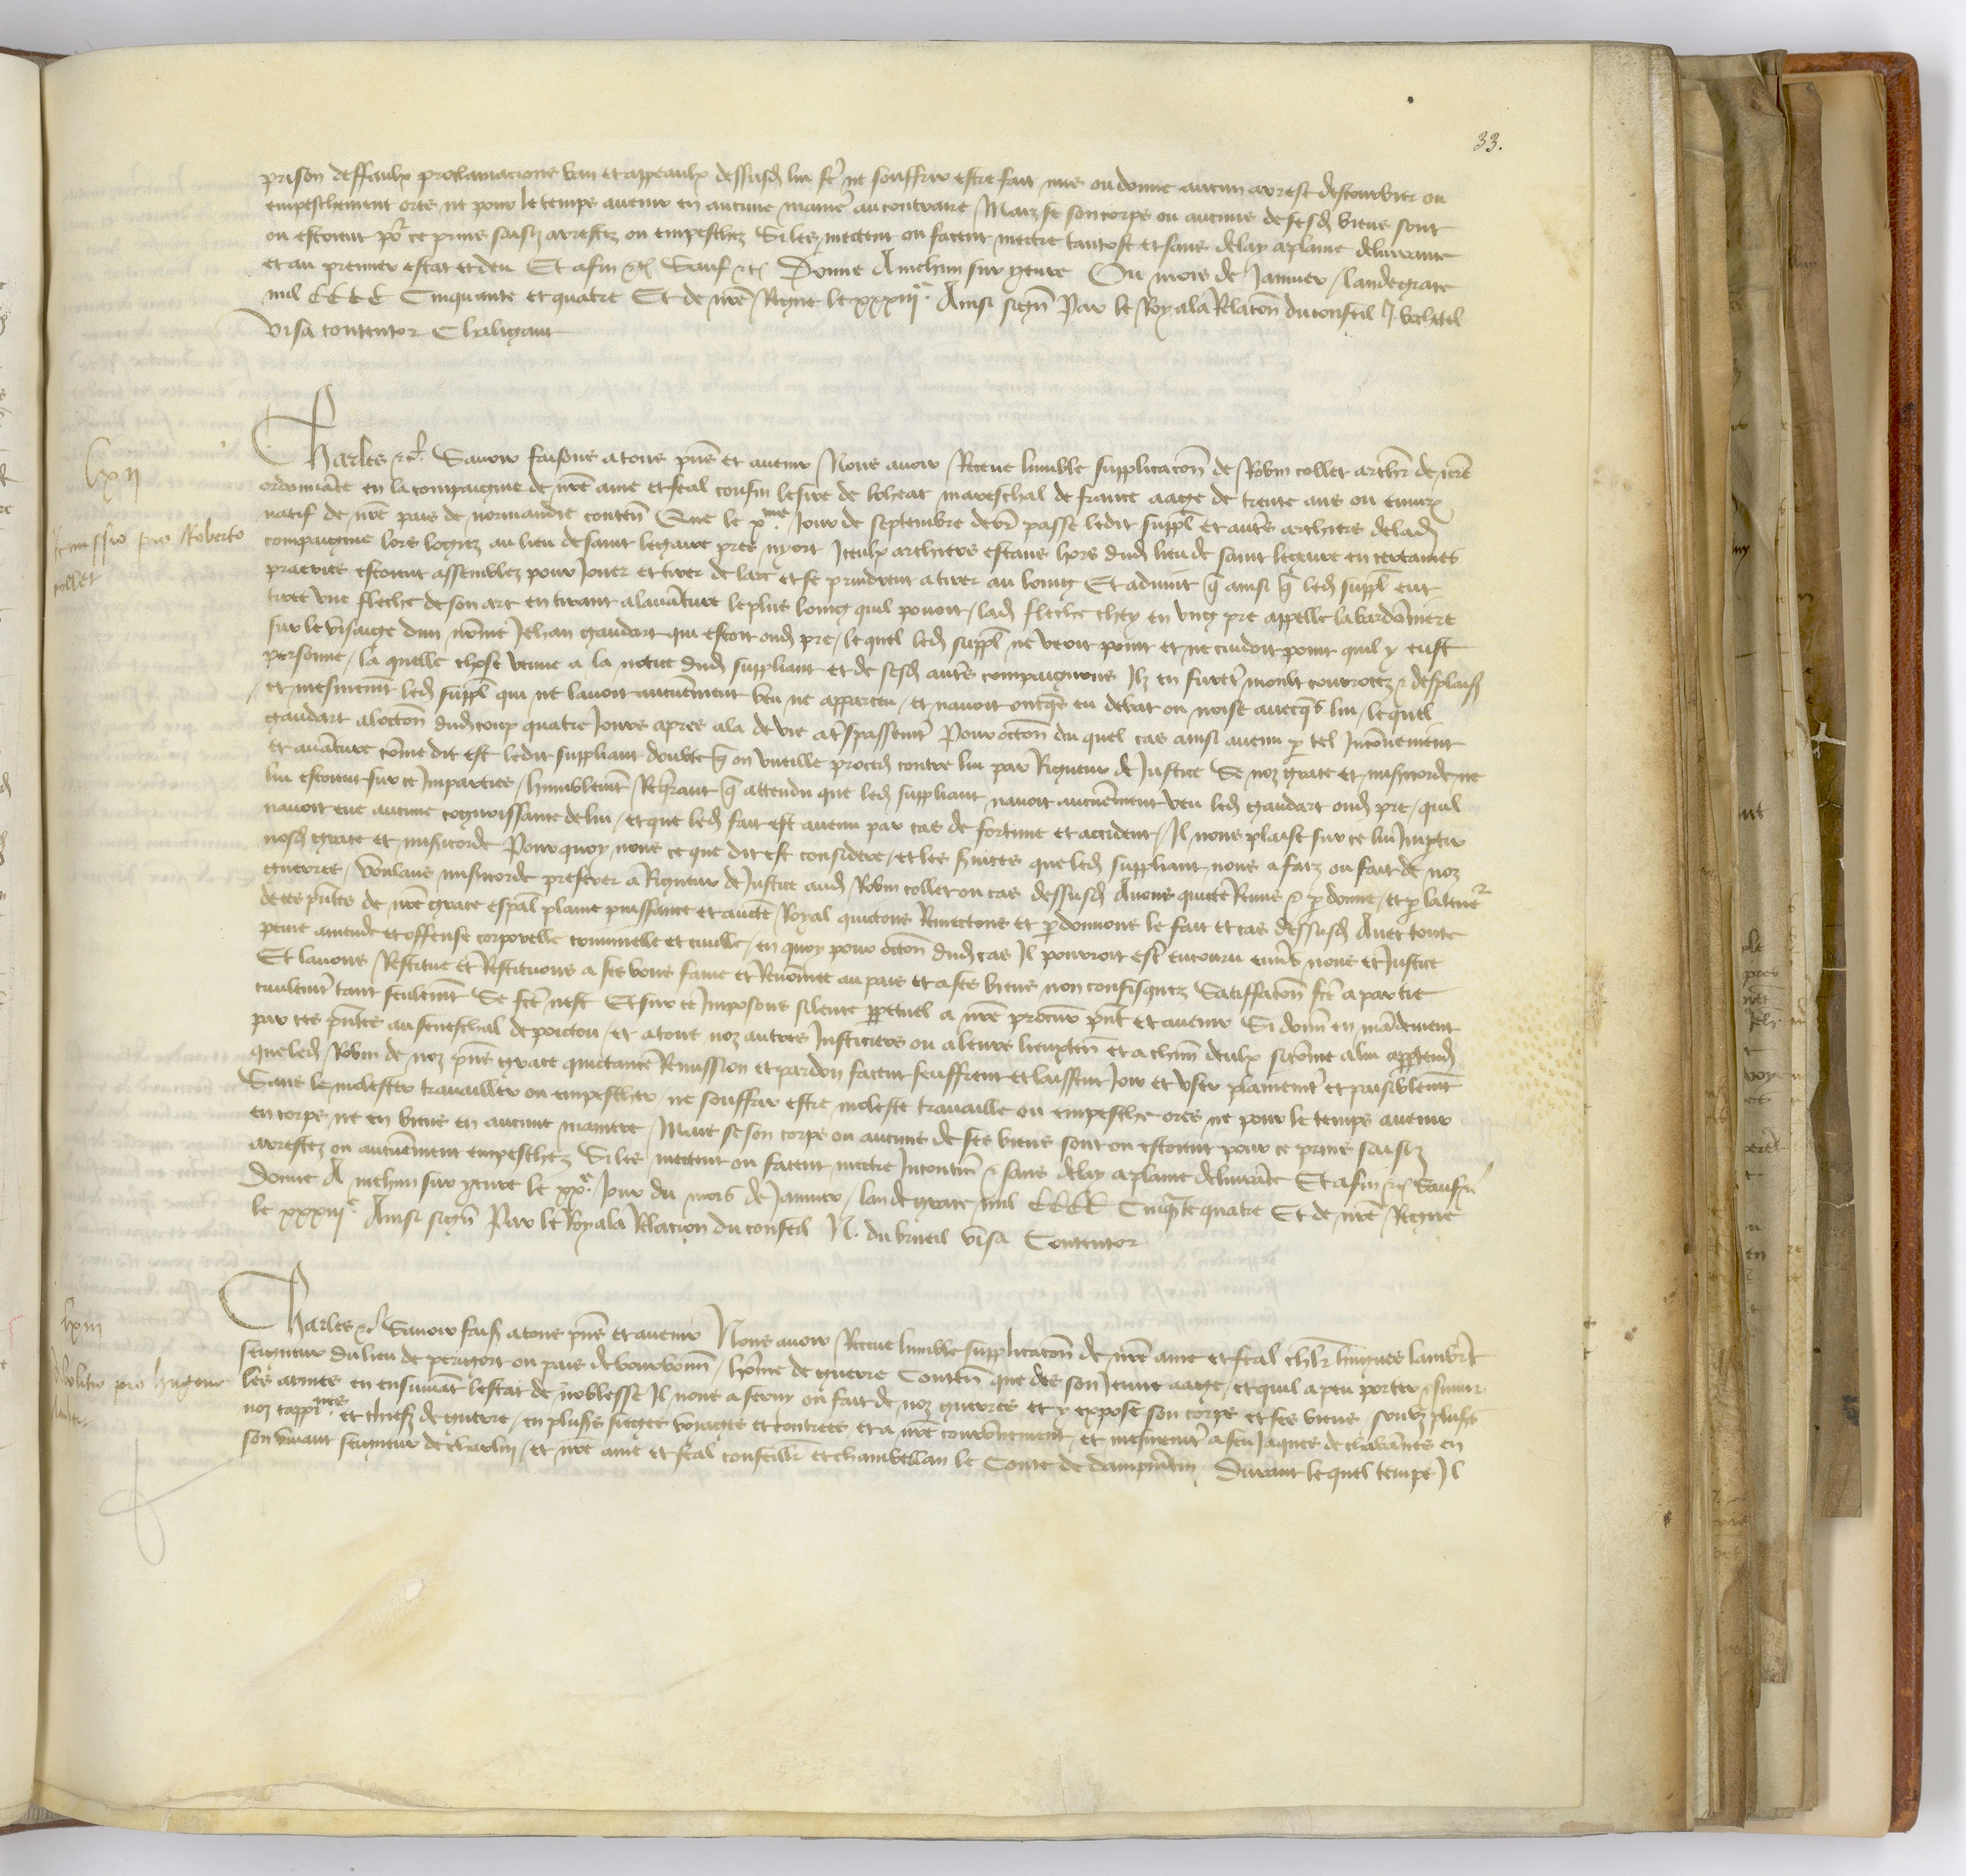 33.
prison deffaulx proclamacions ban et appeaulx dessusd lui fe ne souffrir estre fait mis ou donne aucun arrest destourbier ou
empeschement ores ne pour le temps avenir en aucune maniere au contraire Maiz se son corps ou aucuns de sesd biens sont
ou estoient por ce prins saisiz arrestez ou empeschez Si les mectent ou facent mectre tantost et sans delay a plaine delivrance
et au premier estat et deu Et afin etc Sauf etc Donne A mehun sur yevre Ou mois de Janvier lan de grace
mil CCCC Cinquante et quatre Et de nre Regne le xxxiiie Ainsi signe Par le Roy a la Relacon du conseil J. bechebel
Visa contentor Chaligaut
lxii
Remissio pro Roberto
collet
Charles etc Savoir faisons a tous pns et avenir Nous avoir Receue lumble supplicacon de Robin collet archer de nre
ordonnance en la compaignie de nre ame et feal cousin le sire de loheac mareschal de france aage de trente ans ou environ
natif de nre pais de normandie conten Que le xme Jour de septembre derr passe ledit suppl et autres archiers de lad
compaignie lors logiez au lieu de saint legaire pres nyort Iceulx archiers estans hors dud lieu de saint legaire en certaines
praeries estoient assemblez pour Jouer et tirer de larc et se prindrent a tirer au loing Et advint q ainsi q led suppl eut
tire une fleche de son arc en tirant a lavanture le plus loing quil povoit lad fleche chey en ung pre appelle labardonniere
sur le visaige dun nomme Jehan gaudart qui estoit oud pre lequel led suppl ne veoit point et ne cuidoit point quil y eust
personne la quelle chose venue a la notice dud suppliant et de sesd autres compaignons Ilz en furent moult courrocez et desplais
et mesmement led suppl qui ne lavoit aucunement veu ne apparceu et navoit oncques eu debat ou noise avecques lui lequel
gaudart a loccon dud coup quatre Jours apres ala de vie a trespassement Pour occon du quel cas ainsi avenu p tel Inconvenient
et avanture comme dit est ledit suppliant doubte q on vueille proced contre lui par Rigueur de Justice Se noz grace et misericorde ne
lui estoient sur ce Imparties humblement Requerant q attendu que led suppliant navoit aucunement veu led gaudart oud pre quil
navoit eue aucune cognoissance de lui et que led fait est avenu par cas de fortune et accident Il nous plaise sur ce lui Impartir
nosd grace et misericorde Pourquoy nous ce que dit est considere et les services que led suppliant nous a faiz ou fait de noz
guerres Voulans misericorde preferer a Rigueur de Justice aud Robin collet ou cas dessusd Avons quicte Remis et pdonne et p la teneur
de ces pntes de nre grace espal plaine puissance et aucte Royal quictons Remectons et pdonnons le fait et cas dessusd Avec toute
peine amende et offense corporelle criminelle et civille en quoy pour occon dud cas Il pourroit estre encouru envers nous et Justice
Et lavons Restitue et Restituons a ses bons fame et Renommee au pais et a ses biens non confisquez Satisfacon fce a partie
civilement tant seulement Se fce nest Et sur ce Imposons silence perpetuel a nre procureur pnt et avenir Si donn en mandement
par ces pntes au seneschal de poictou et a tous noz autres Justiciers ou a leurs lieuxten et a chun deulx si comme a lui apptiend
que led Robin de noz pns grace quictance Remission et pardon facent seuffrent et laissent Joir et user plainement et paisiblement
Sans le molester travailler ou empescher ne souffrir estre moleste travaille ou empesche ores ne pour le temps avenir
en corps ne en biens en aucune maniere Mais se son corps ou aucuns de ses biens sont ou estoient pour ce prins saisiz
arrestez ou aucunement empeschez Si les mectent ou facent mectre Incontin et sans delay a plaine delivrance Et afin etc Sauf etc
Donne A mehun sur yevre le xxe Jour du mois de Janvier lan de grace mil CCCC Cinqte quatre Et de nre Regne
le xxxiiie Ainsi signe Par le Roy a la Relacion du conseil N. du brueil visa Contentor
lxiii
Abolitio pro hugone
Charles etc Savoir fais a tous pns et avenir Nous avoir Receue lumble supplicacon de nre ame et feal chlr hugues
seigneur du lieu de perigort ou pais de bourbonn homme de guerre Conten que des son Jeune aage et quil a peu porter et suivir
les armes en ensuivant lestat de noblesse Il nous a servy ou fait de noz guerres et y expose son corps et ses biens soubz plus
noz cappines et chiefz de guerre en plus sieges voyages et contrees et a nre couronnement et mesmement a feu Jaques de chabannes en
son vivant seigneur de charlus et nre ame et feal conseillr et chambellan le Conte de dampmtin Durant lequel temps Il